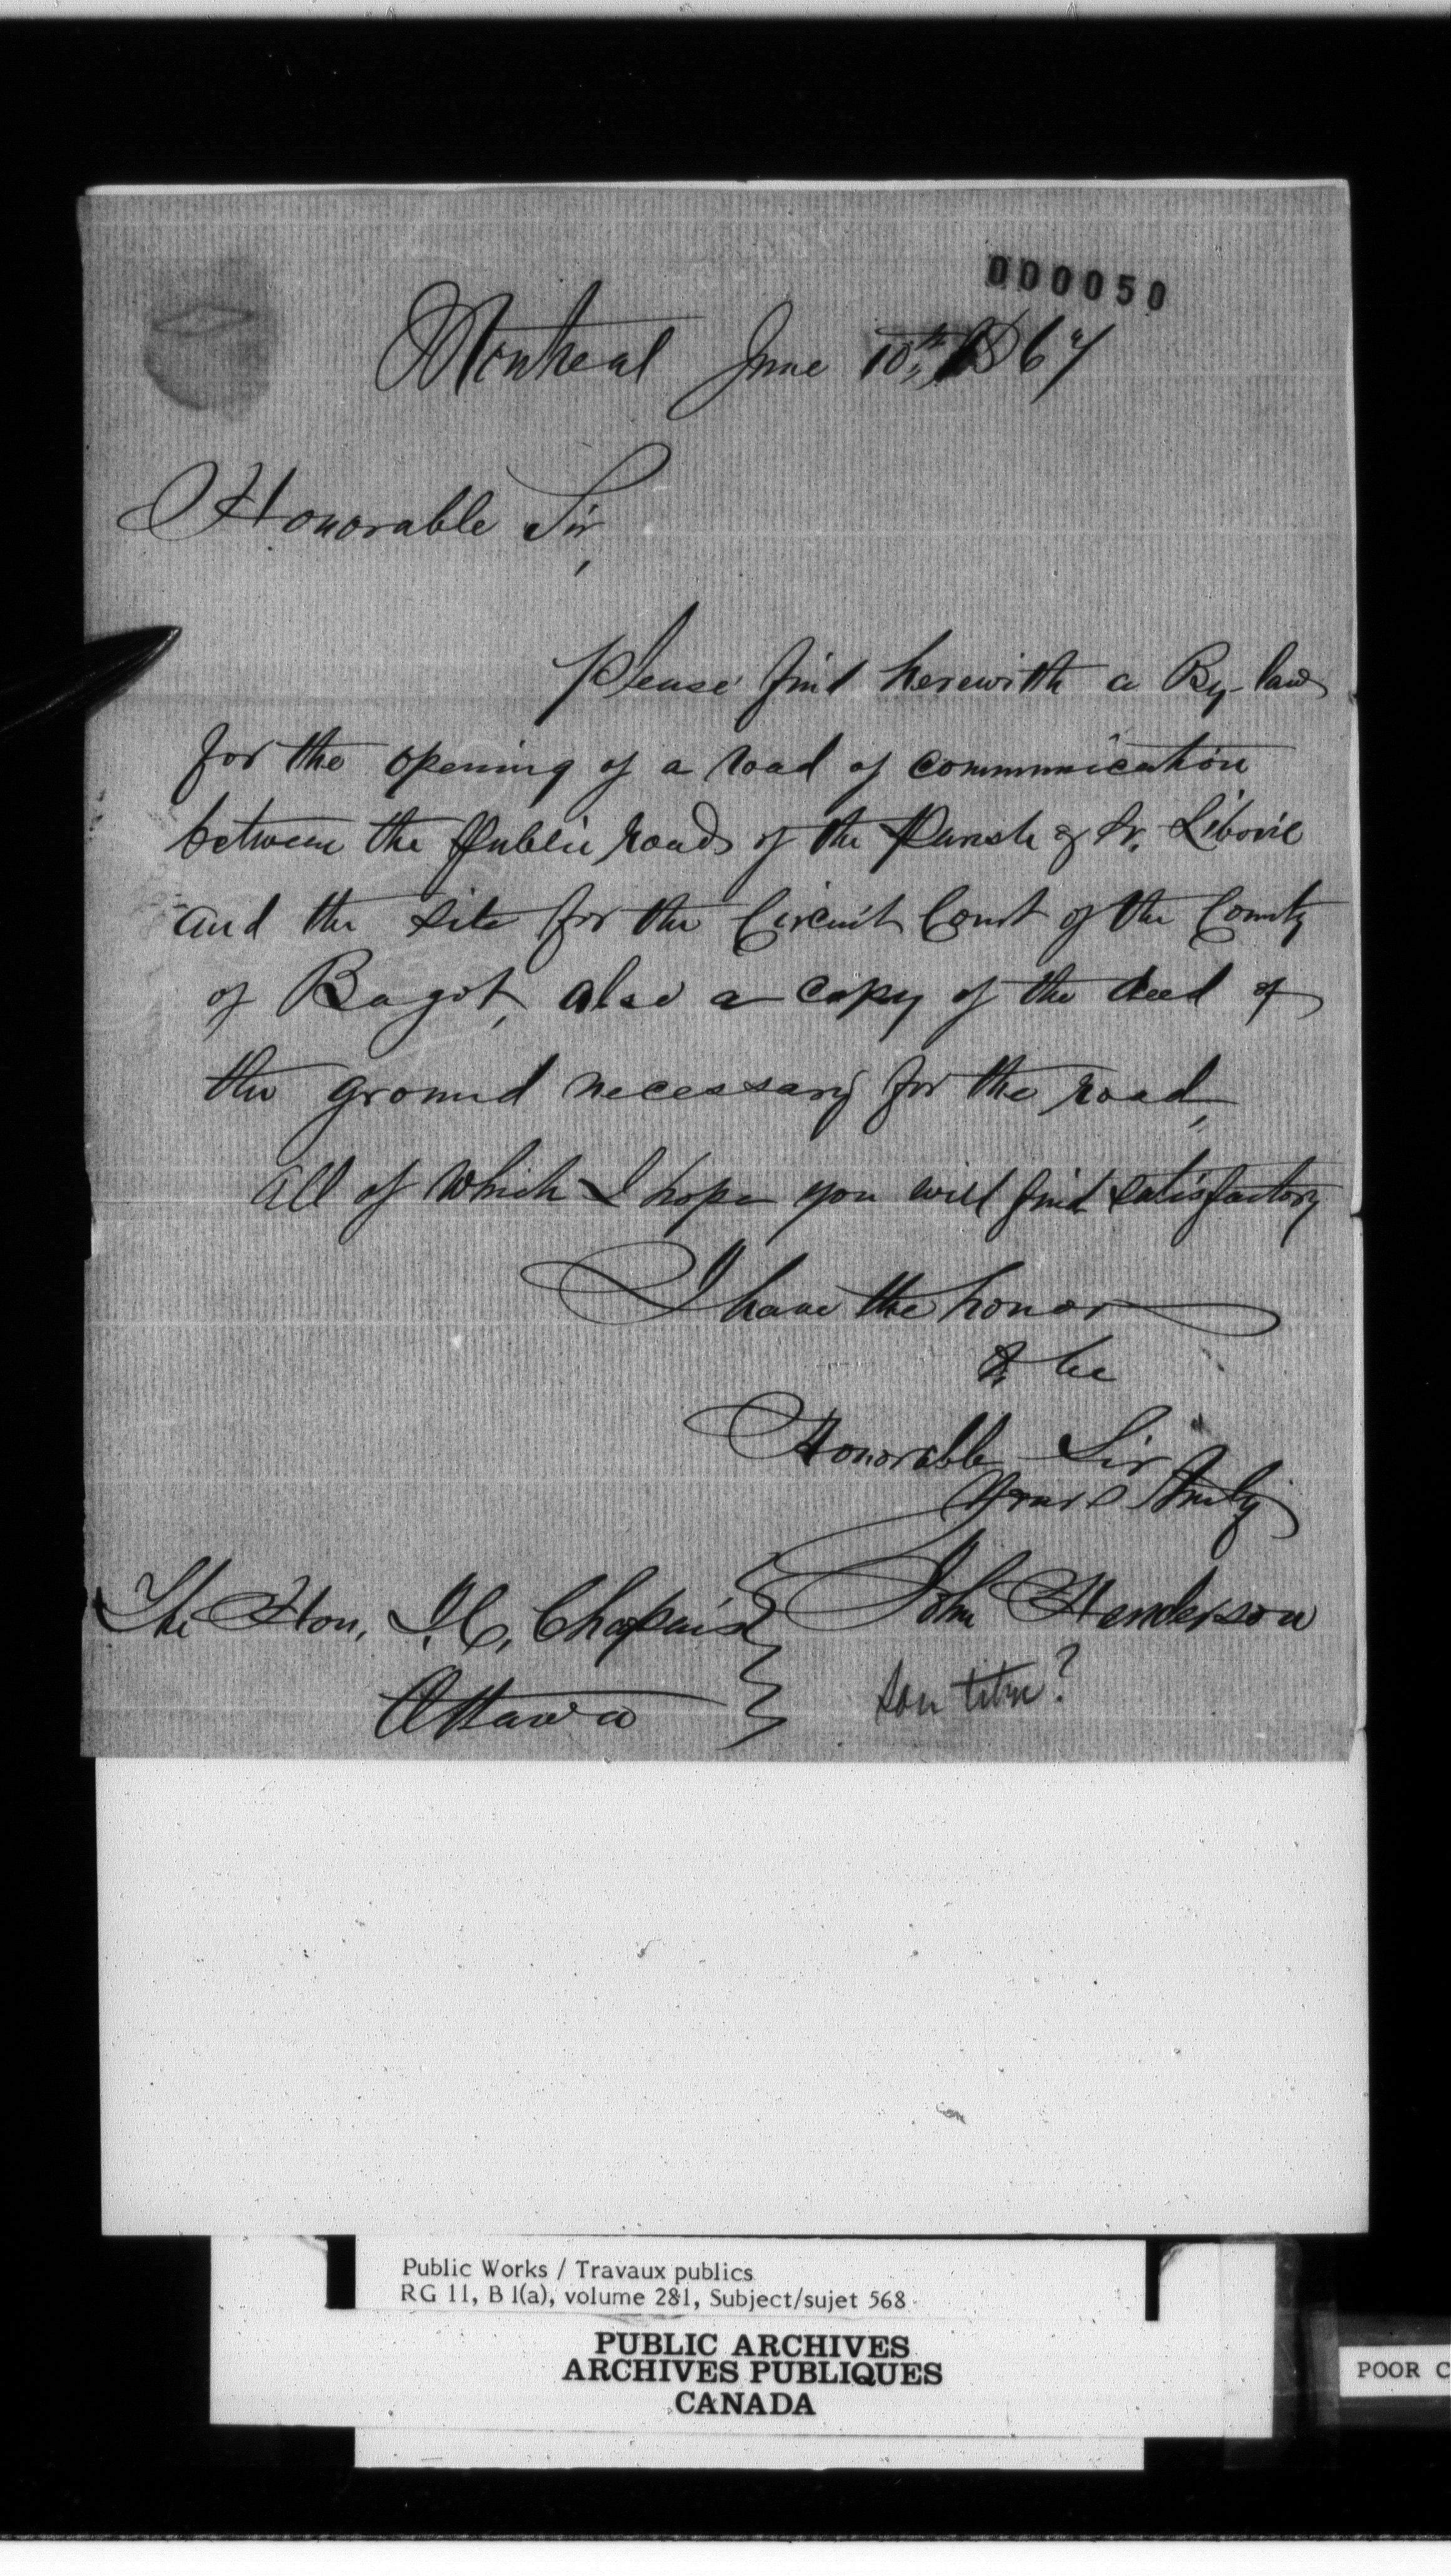 000050
Montreal June 10th, 1867
Honorable Sir,
Please find herewith a By-law
for the opening of a road of communication
between the Public roads of the Parish of St. Liboire
and the site for the Circuit Court of the County
of Bagot, also a copy of the deed of
the ground necessary for the road,
All of which I hope you will find satisfactory
I have the honor
to be
Honorable Sir
Yours truly
John Henderson
The Hon. J. C. Chapais
Ottawa
son titre?
Public Works / Travaux publics
RG 11, B 1(a), volume 281, Subject/sujet 568
PUBLIC ARCHIVES
ARCHIVES PUBLIQUES
CANADA
POOR C